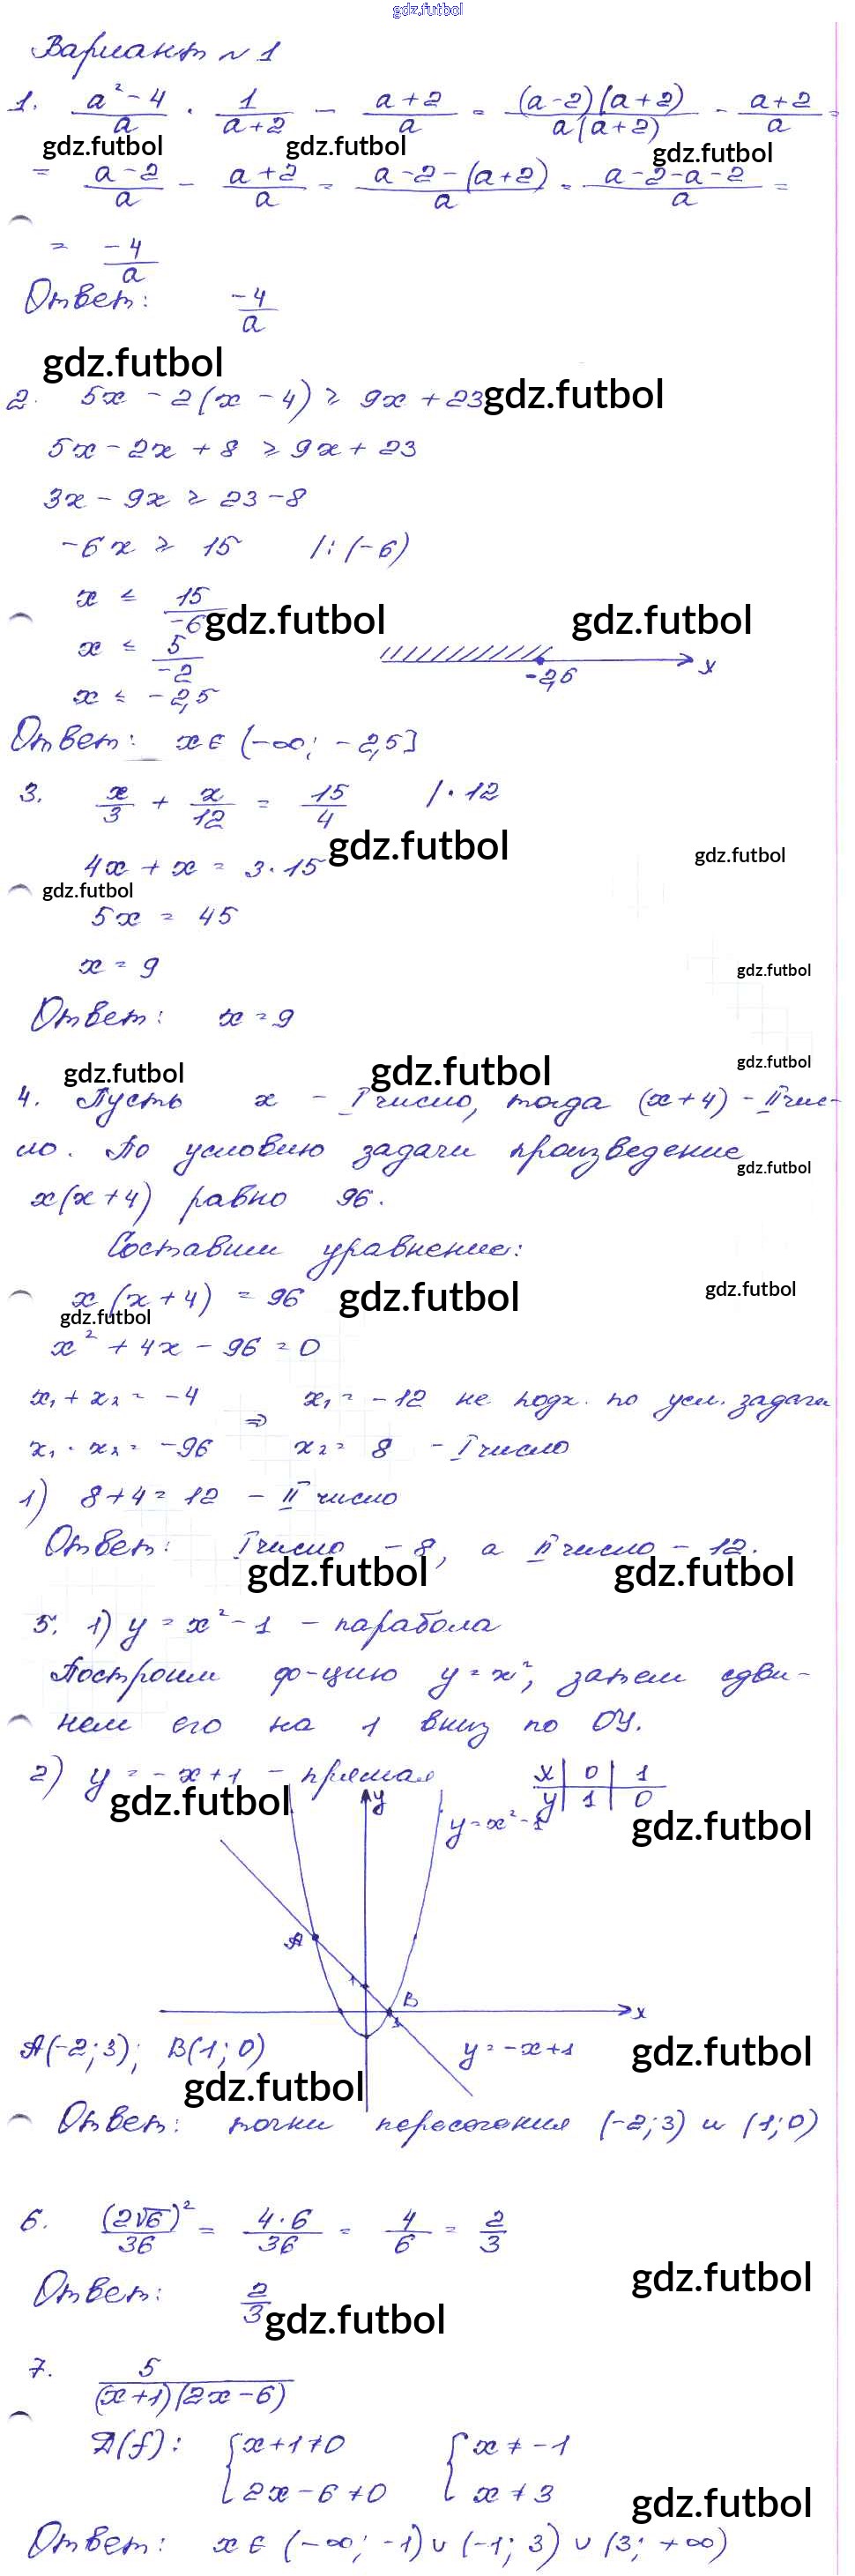 gdz.futbol
Вариант №1
1. (a²-4)/a · 1/(a+2) - (a+2)/a = (a-2)(a+2)/a(a+2) - (a+2)/a =
gdz.futbol gdz.futbol gdz.futbol
= (a-2)/a - (a+2)/a = (a-2-(a+2))/a = (a-2-a-2)/a =
= -4/a
Ответ: -4/a
gdz.futbol
2. 5x - 2(x - 4) ≥ 9x + 23
gdz.futbol
5x - 2x + 8 ≥ 9x + 23
3x - 9x ≥ 23-8
-6x ≥ 15 /:(-6)
x ≤ 15/-6
gdz.futbol gdz.futbol
x ≤ 5/-2
-2,5 x
x ≤ -2,5
Ответ: x∈(-∞; -2,5]
3. x/3 + x/12 = 15/4 /·12
gdz.futbol
4x + x = 3·15
gdz.futbol
gdz.futbol
5x = 45
x = 9
gdz.futbol
Ответ: x = 9
gdz.futbol gdz.futbol gdz.futbol
4. Пусть x - I число, тогда (x+4) - II чис-
ло. По условию задачи произведение
gdz.futbol
x(x+4) равно 96.
Составим уравнение:
x(x+4) = 96
gdz.futbol gdz.futbol
gdz.futbol
x² + 4x - 96 = 0
x₁ + x₂ = -4 ⇒ x₁ = -12 не подх. по усл. задачи
x₁ · x₂ = -96 x₂ = 8 - I число
1) 8+4 = 12 - II число
Ответ: I число - 8, а II число - 12.
gdz.futbol gdz.futbol
5. 1) y = x²-1 - парабола
Построим ф-цию y = x², затем сдви-
нем его на 1 вниз по ОУ.
2) y = -x+1 - прямая x 0 1
y 1 0
gdz.futbol
y
y = x²-1
gdz.futbol
A
1
B
1
x
A(-2;3); B(1;0)
y = -x+1
gdz.futbol
gdz.futbol
Ответ: точки пересечения (-2;3) и (1;0)
6. (2√6)²/36 = 4·6/36 = 4/6 = 2/3
gdz.futbol
Ответ: 2/3
gdz.futbol
7. 5/(x+1)(2x-6)
Д(f): {x+1≠0 {x ≠ -1
{2x-6≠0 {x ≠ 3
gdz.futbol
Ответ: x∈(-∞; -1)∪(-1; 3)∪(3; +∞)